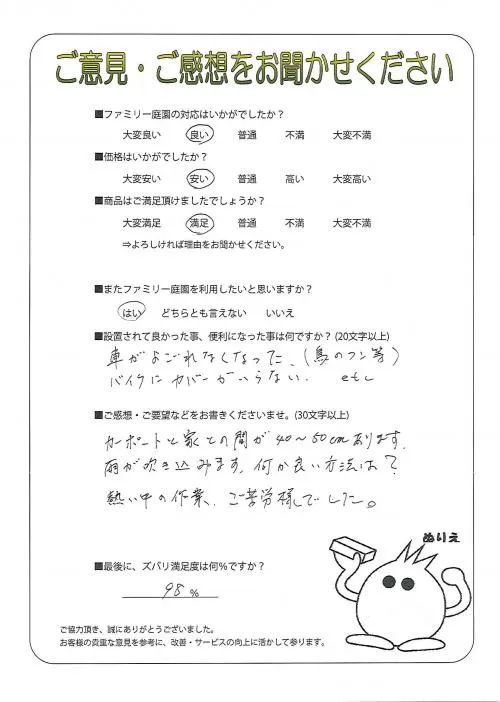 ご意見・ご感想をお聞かせください
■ファミリー庭園の対応はいかがでしたか？
大変良い 良い 普通 不満 大変不満
■価格はいかがでしたか？
大変安い 安い 普通 高い 大変高い
■商品はご満足頂けましたでしょうか？
大変満足 満足 普通 不満 大変不満
⇒よろしければ理由をお聞かせください。
■またファミリー庭園を利用したいと思いますか？
はい どちらとも言えない いいえ
■設置されて良かった事、便利になった事は何ですか？(20文字以上)
車がよごれなくなった、(鳥のフン等)
バイクにカバーがいらない. etc
■ご感想・ご要望などをお書きくださいませ。(30文字以上)
カーポートと家との間が40〜50cmあります.
雨が吹き込みます. 何か良い方法は？
熱い中の作業、ご苦労様でした。
ぬりえ
■最後に、ズバリ満足度は何％ですか？
98 %
ご協力頂き、誠にありがとうございました。
お客様の貴重な意見を参考に、改善・サービスの向上に活かして参ります。